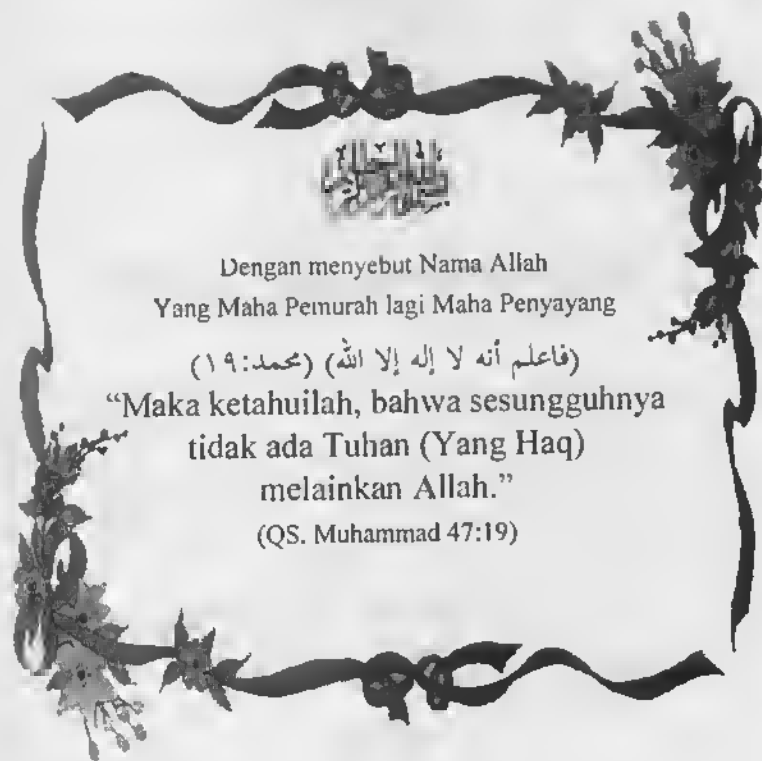 Dengan menyebut Nama Allah
Yang Maha Pemurah lagi Maha Penyayang
(فاعلم أنه لا إله إلا الله) (محمد:١٩)
“Maka ketahuilah, bahwa sesungguhnya
tidak ada Tuhan (Yang Haq)
melainkan Allah.”
(QS. Muhammad 47:19)